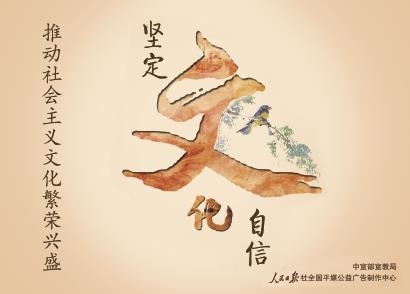 坚定
文
化
自信
推动社会主义文化繁荣兴盛
中宣部宣教局
人民日报社全国平媒公益广告制作中心